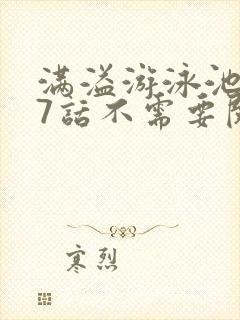 满溢游泳池
7話不需要
寒烈